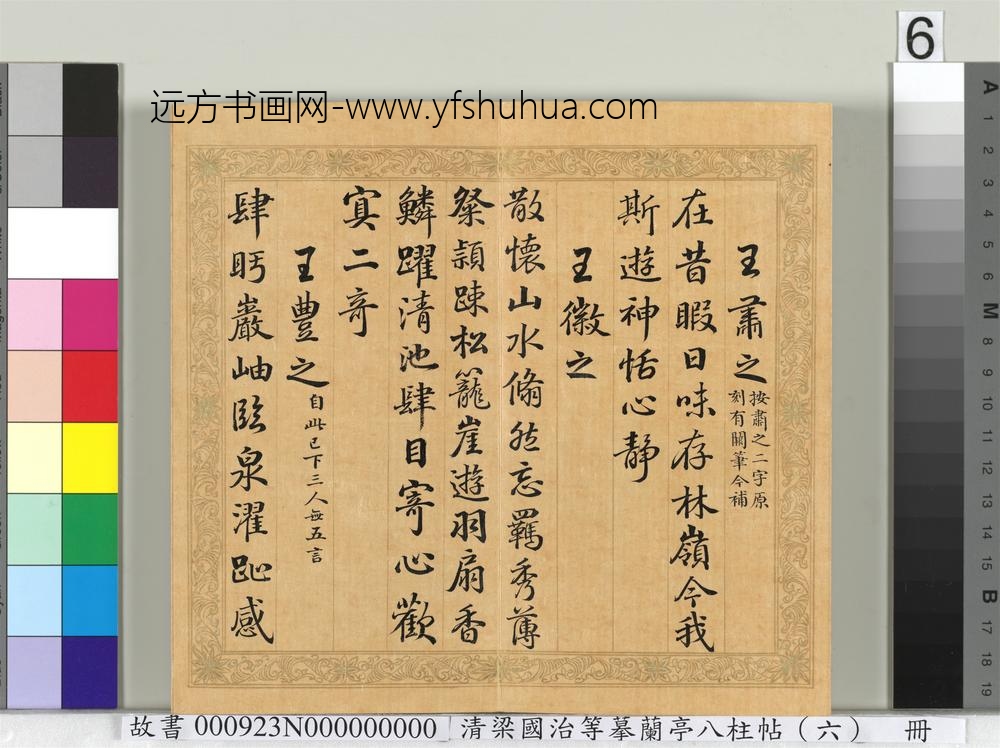 6
远方书画网-www.yfshuhua.com
王肅之
按肅之二字原
刻有關筆今補
在昔暇日味存林嶺今我
斯遊神恬心靜
王徽之
散懷山水翛然忘羈秀薄
粲穎疎松籠崖遊羽扇香
鱗躍清池肆目寄心歡
寘二奇
王豊之
自此已下三人無五言
肆眄巖岫臨泉濯趾感
A
1
2
3
4
5
6
M
8
9
10
11
12
13
14
15
B
17
18
19
故書 000923N000000000 清梁國治等摹蘭亭八柱帖（六） 冊